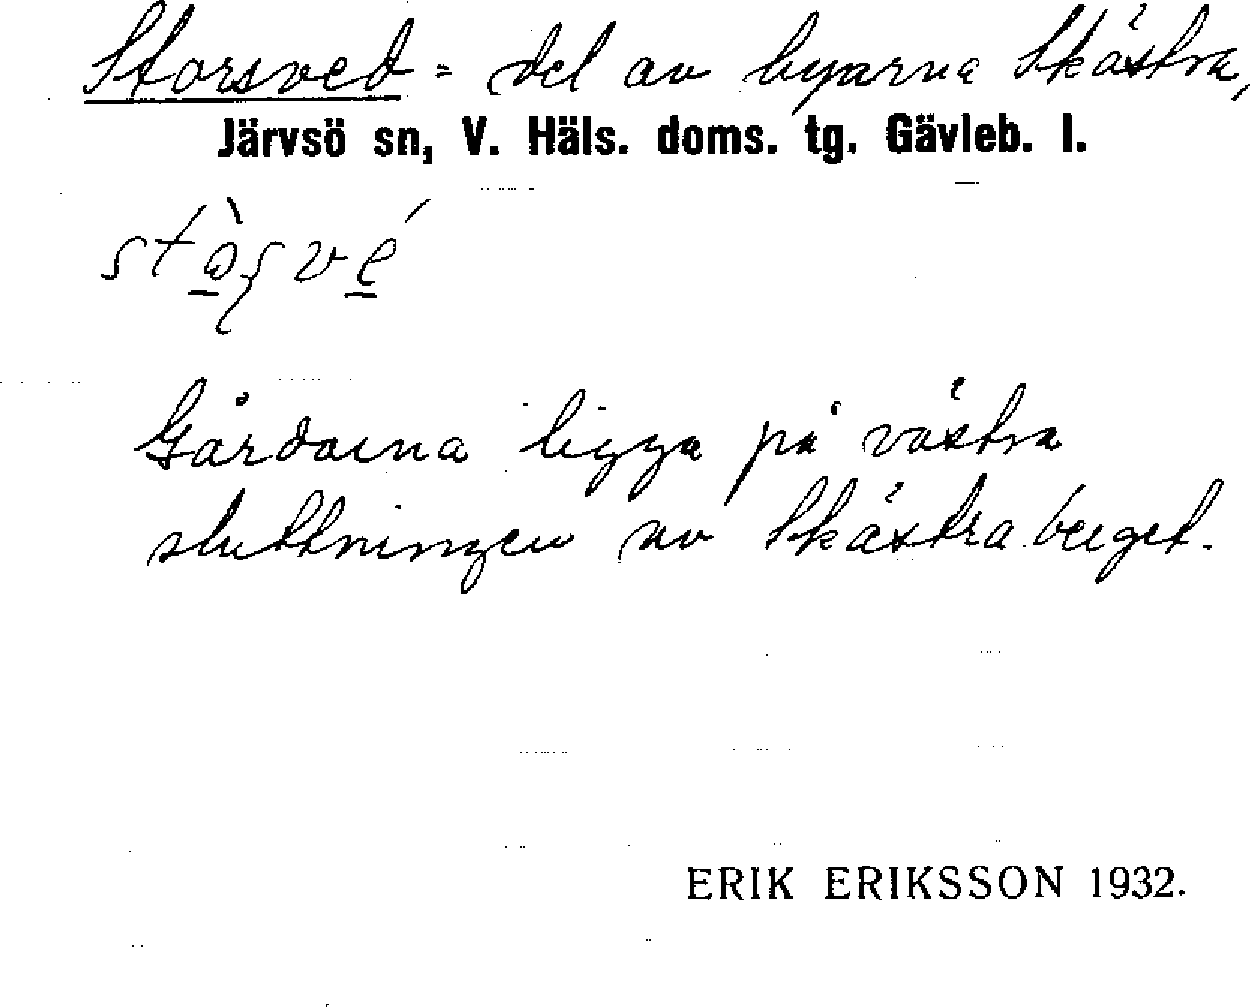 Storsved = del av byarna Skästra,
Järvsö sn, V. Häls. doms. tg. Gävleb. l.
Gårdarna ligga på västra
sluttningen av Skästraberget.
ERIK ERIKSSON 1932.